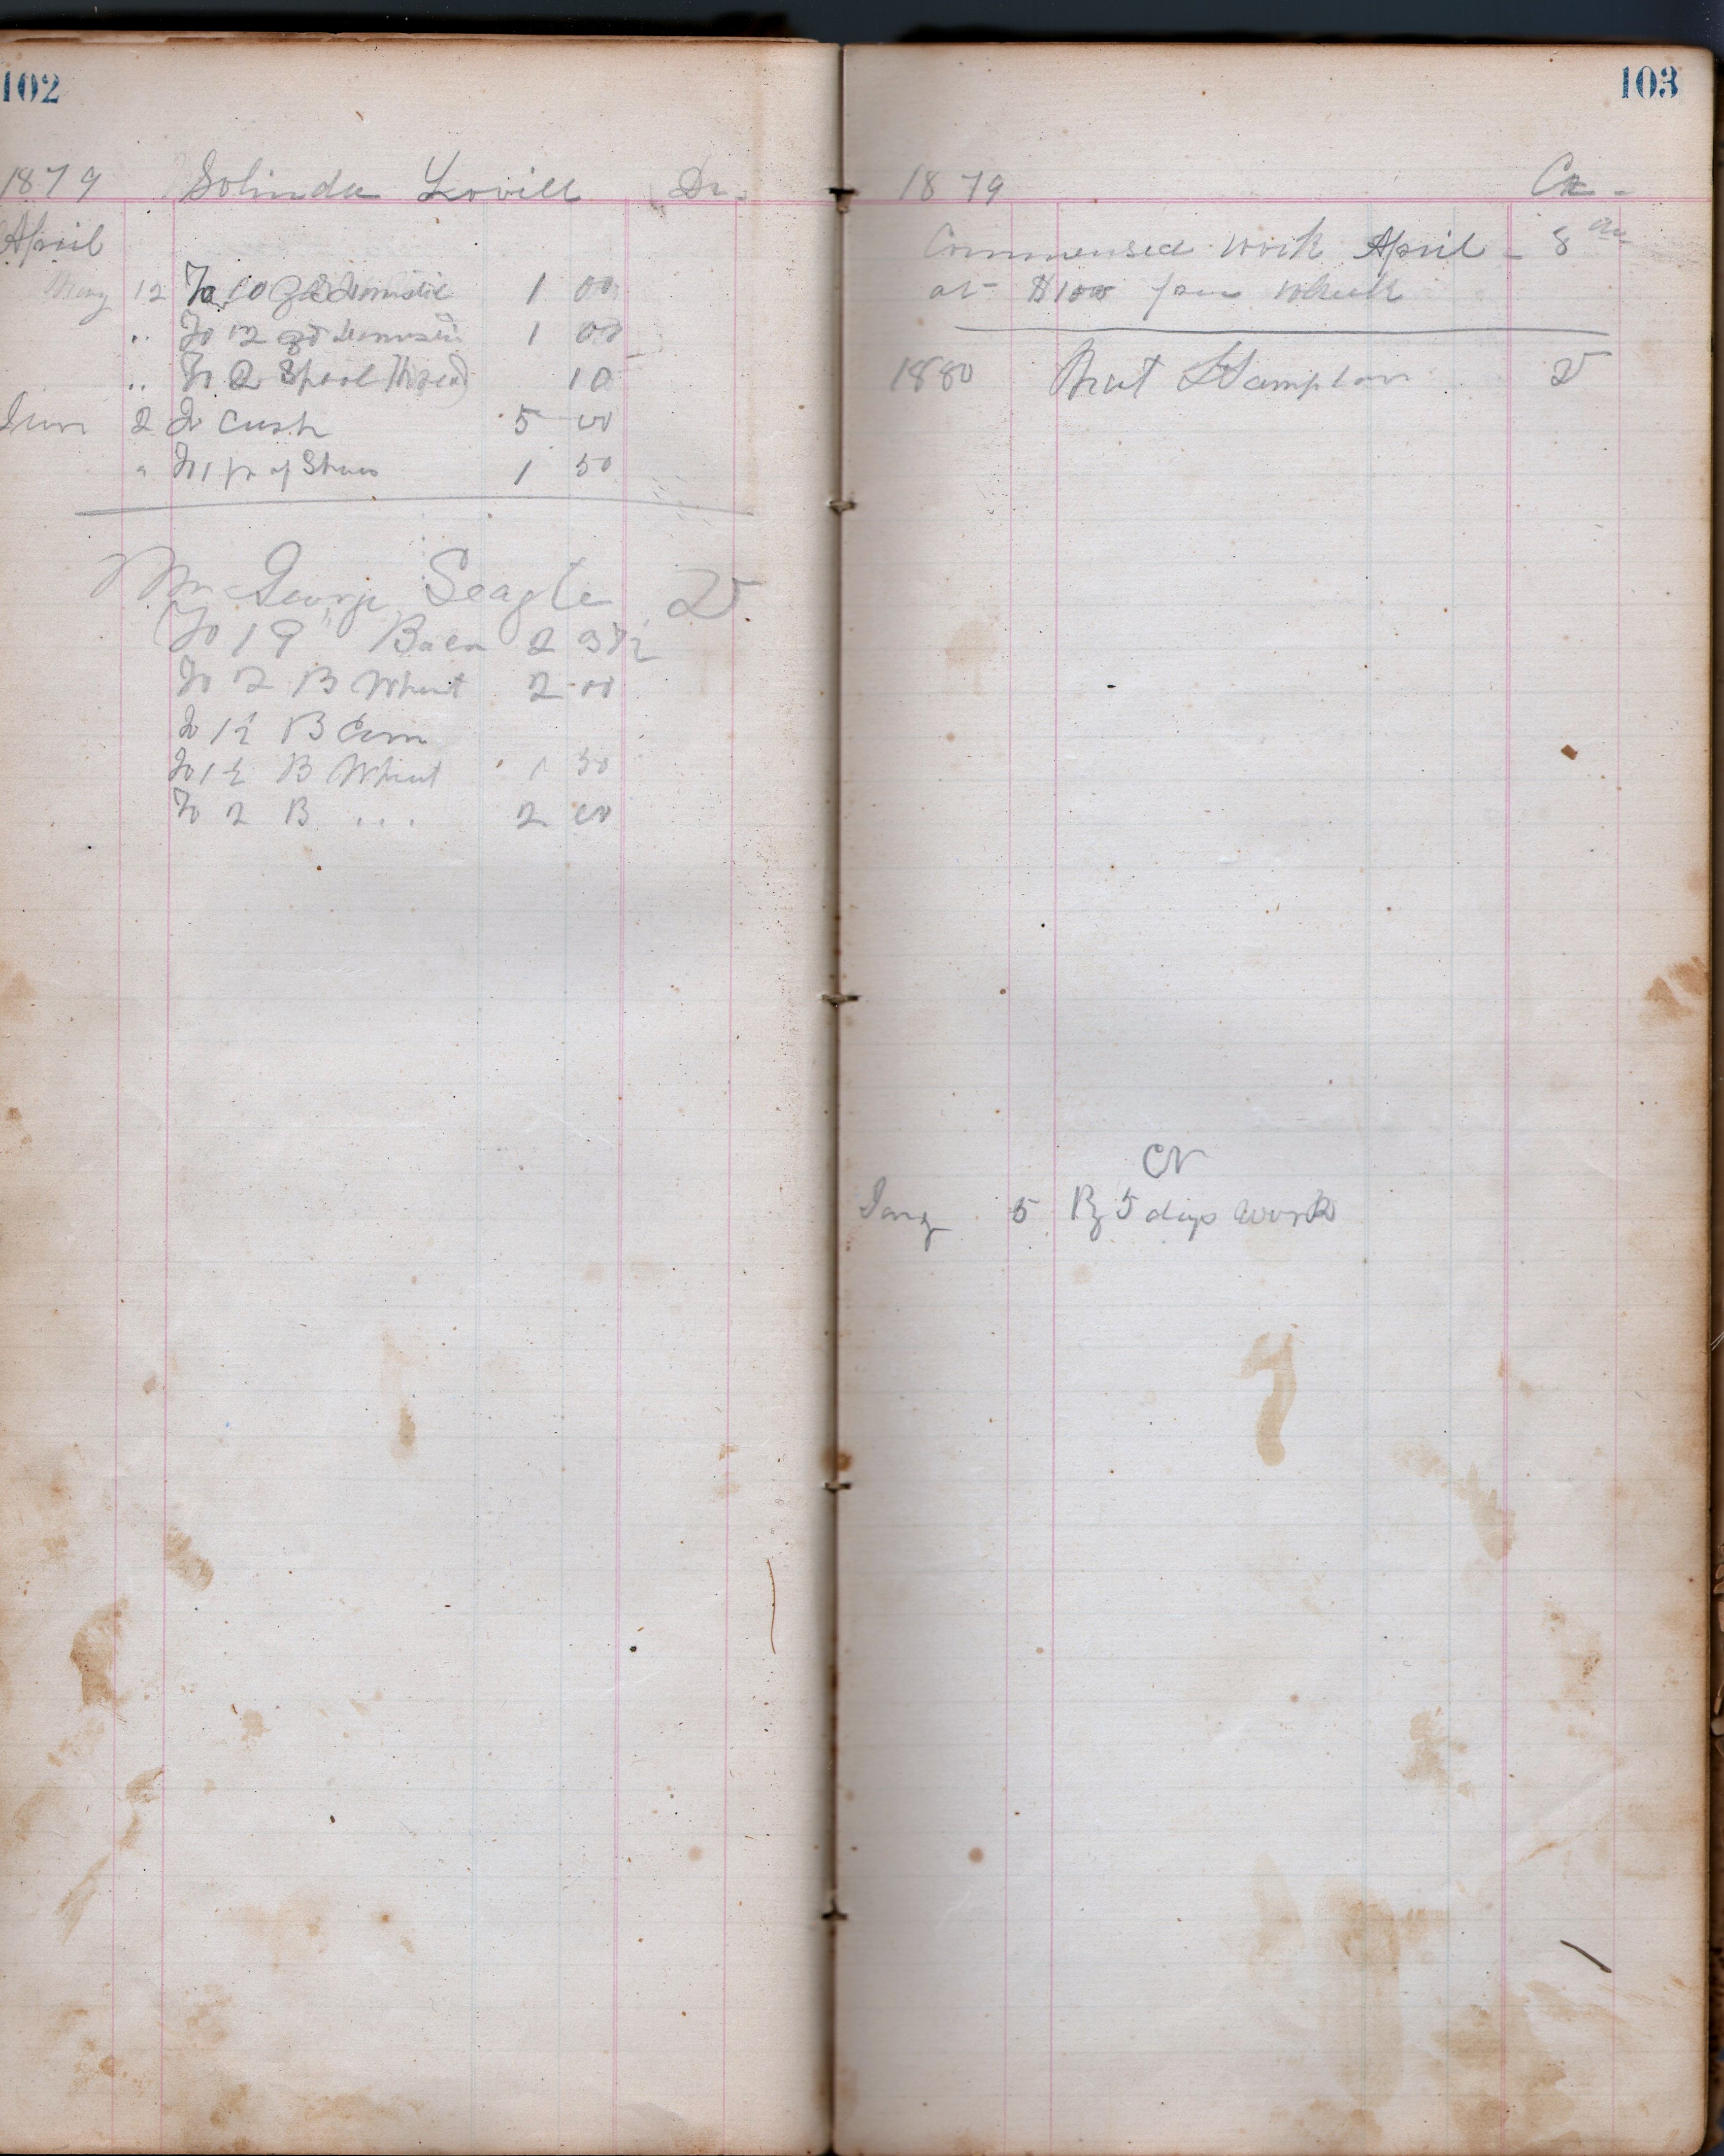 102
1879 Solinda Lovill Dr.
April
May 12 To 10 yd domestic 1 00
" To 12 yd domestic 1 00
" To 2 Spool Thread 10
Jun 2 To Cash 5 00
" To 1 pr of Shoes 1 50
Mr George Seagle Dr
To 19 " Bacn 2 37½
To 2 B Wheat 2 00
To 1½ B Corn
To 1½ B Wheat 1 50
To 2 B " 2 00
103
1879 Cr.
Commensed work April - 8th
at $1.00 per Wheek
1880 Hampton Dr
Cr
Jany 5 By 5 days work